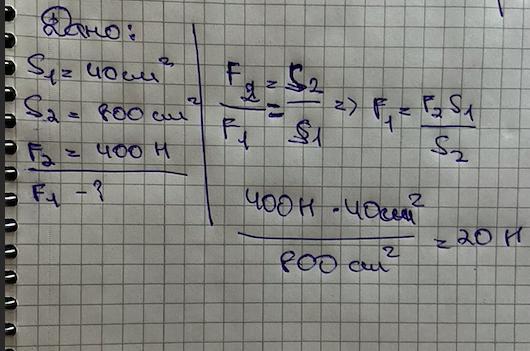 Дано:
S₁ = 40 см²
S₂ = 800 см²
F₂ = 400 Н
F₁ - ?
F₂/F₁ = S₂/S₁ => F₁ = F₂S₁/S₂
400 Н · 40 см² / 800 см² = 20 Н